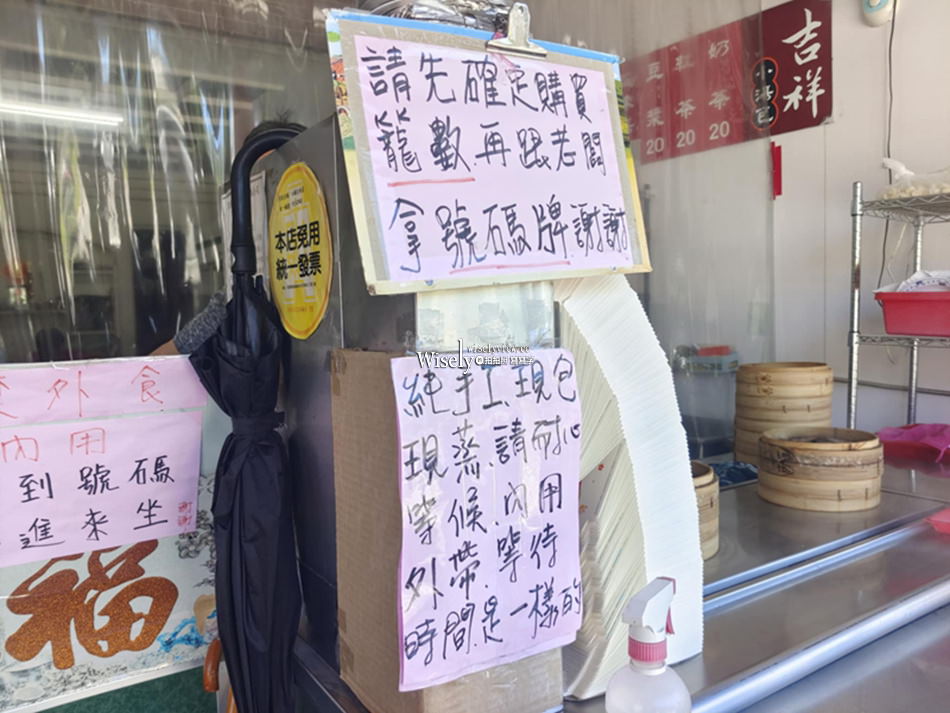 請先確定購買
籠數再跟老闆
拿號碼牌.謝謝
本店免用
統一發票
純手工.現包
現蒸.請耐心
等候.內用
外帶.等待
時間是一樣的
外食
內用
到號碼
進來坐
謝謝
福
吉祥
小湯包
奶茶20
紅茶20
豆漿20
wiselyview.cc
Wisely